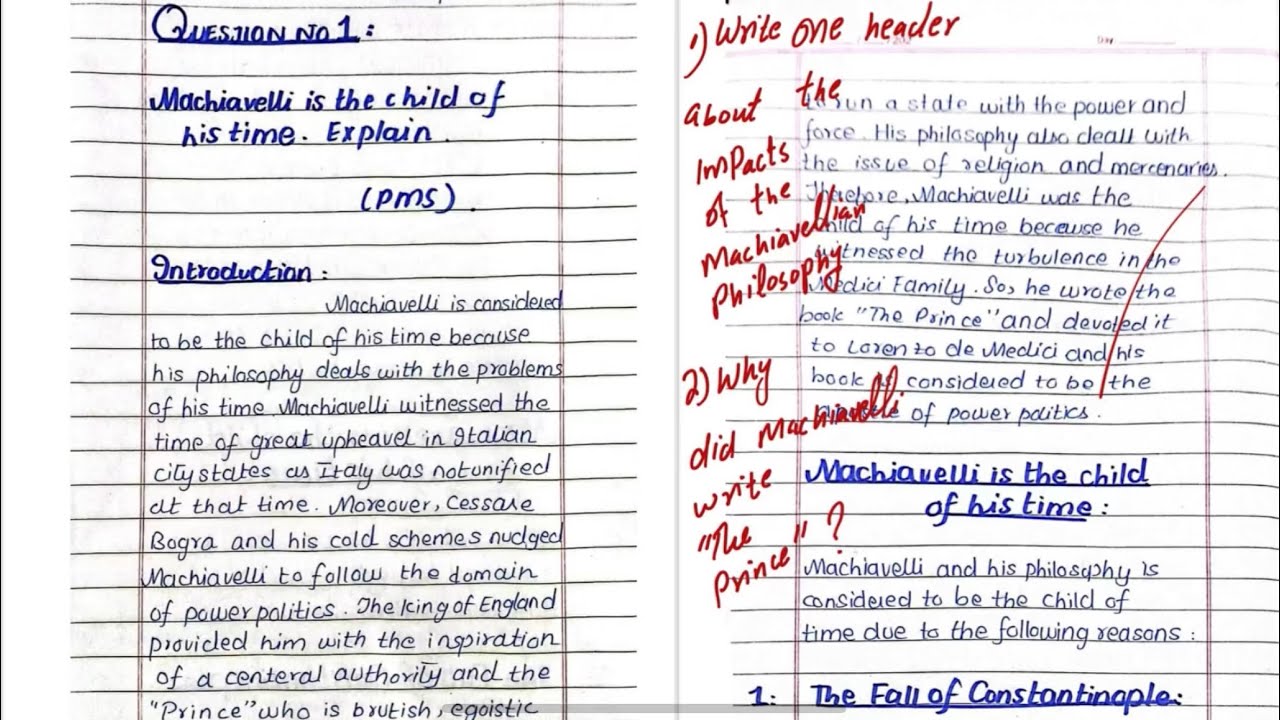 QUESTION NO 1:
Machiavelli is the child of
his time. Explain.
(PMS).
Introduction:
Machiavelli is considered
to be the child of his time because
his philosophy deals with the problems
of his time. Machiavelli witnessed the
time of great upheavel in Italian
city states as Italy was not unified
at that time. Moreover, Cessare
Bogra and his cold schemes nudged
Machiavelli to follow the domain
of power politics. The king of England
provided him with the inspiration
of a centeral authority and the
"Prince" who is brutish, egoistic
1) Write one header
about the
impacts
of the
Machiavellian
Philosophy
2) Why
did Machiavelli
write
"The
Prince" ?
run a state with the power and
force. His philosophy also deall with
the issue of religion and mercenaries.
Therefore, Machiavelli was the
child of his time because he
witnessed the turbulence in the
Medici Family. So, he wrote the
book "The Prince" and devoted it
to Lorenzo de Medici and his
book is considered to be the
of power politics.
Machiavelli is the child
of his time:
Machiavelli and his philosophy is
considered to be the child of
time due to the following reasons:
1: The Fall of Constantinople: